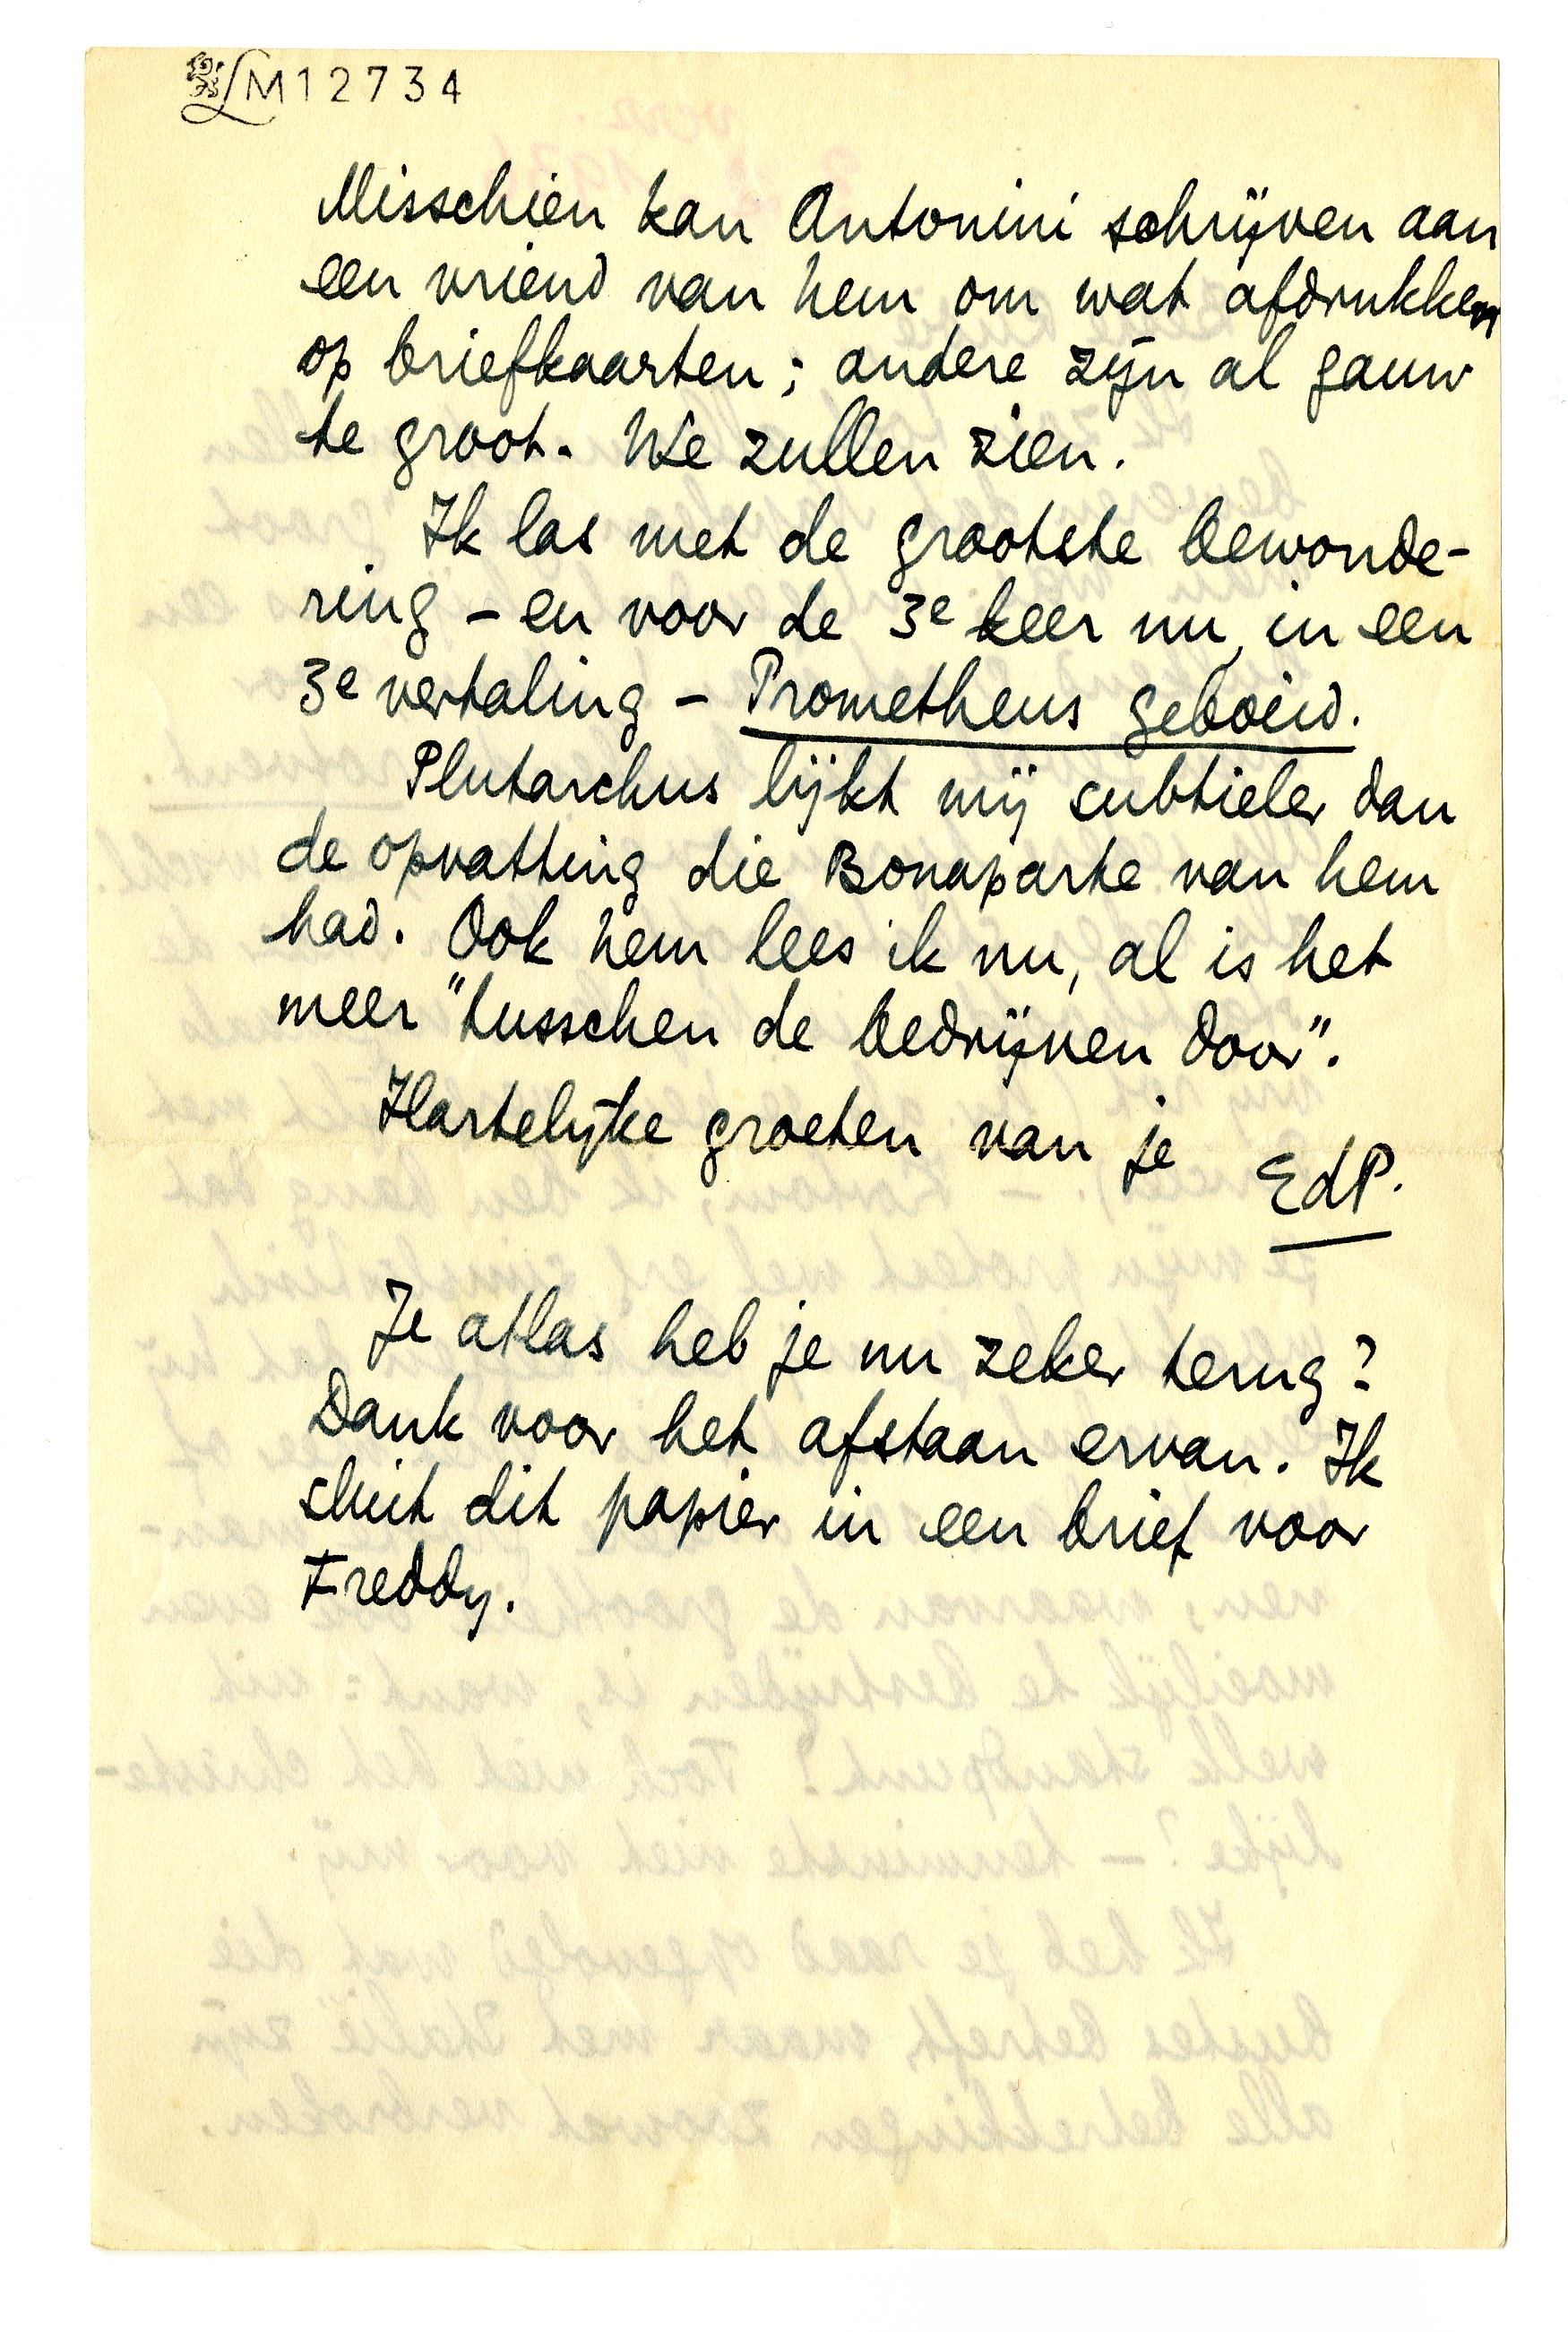 LM12734
Misschien kan Antonini schrijven aan
een vriend van hem om wat afdrukken
op briefkaarten; andere zijn al gauw
te groot. We zullen zien.
Ik las met de grootste bewonde-
ring – en voor de 3e keer nu, in een
3e vertaling – Prometheus geboeid.
Plutarchus lijkt mij subtieler dan
de opvatting die Bonaparte van hem
had. Ook hem lees ik nu, al is het
meer "tusschen de bedrijven door".
Hartelijke groeten van je
EdP.
Je atlas heb je nu zeker terug?
Dank voor het afstaan ervan. Ik
sluit dit papier in een brief voor
Freddy.